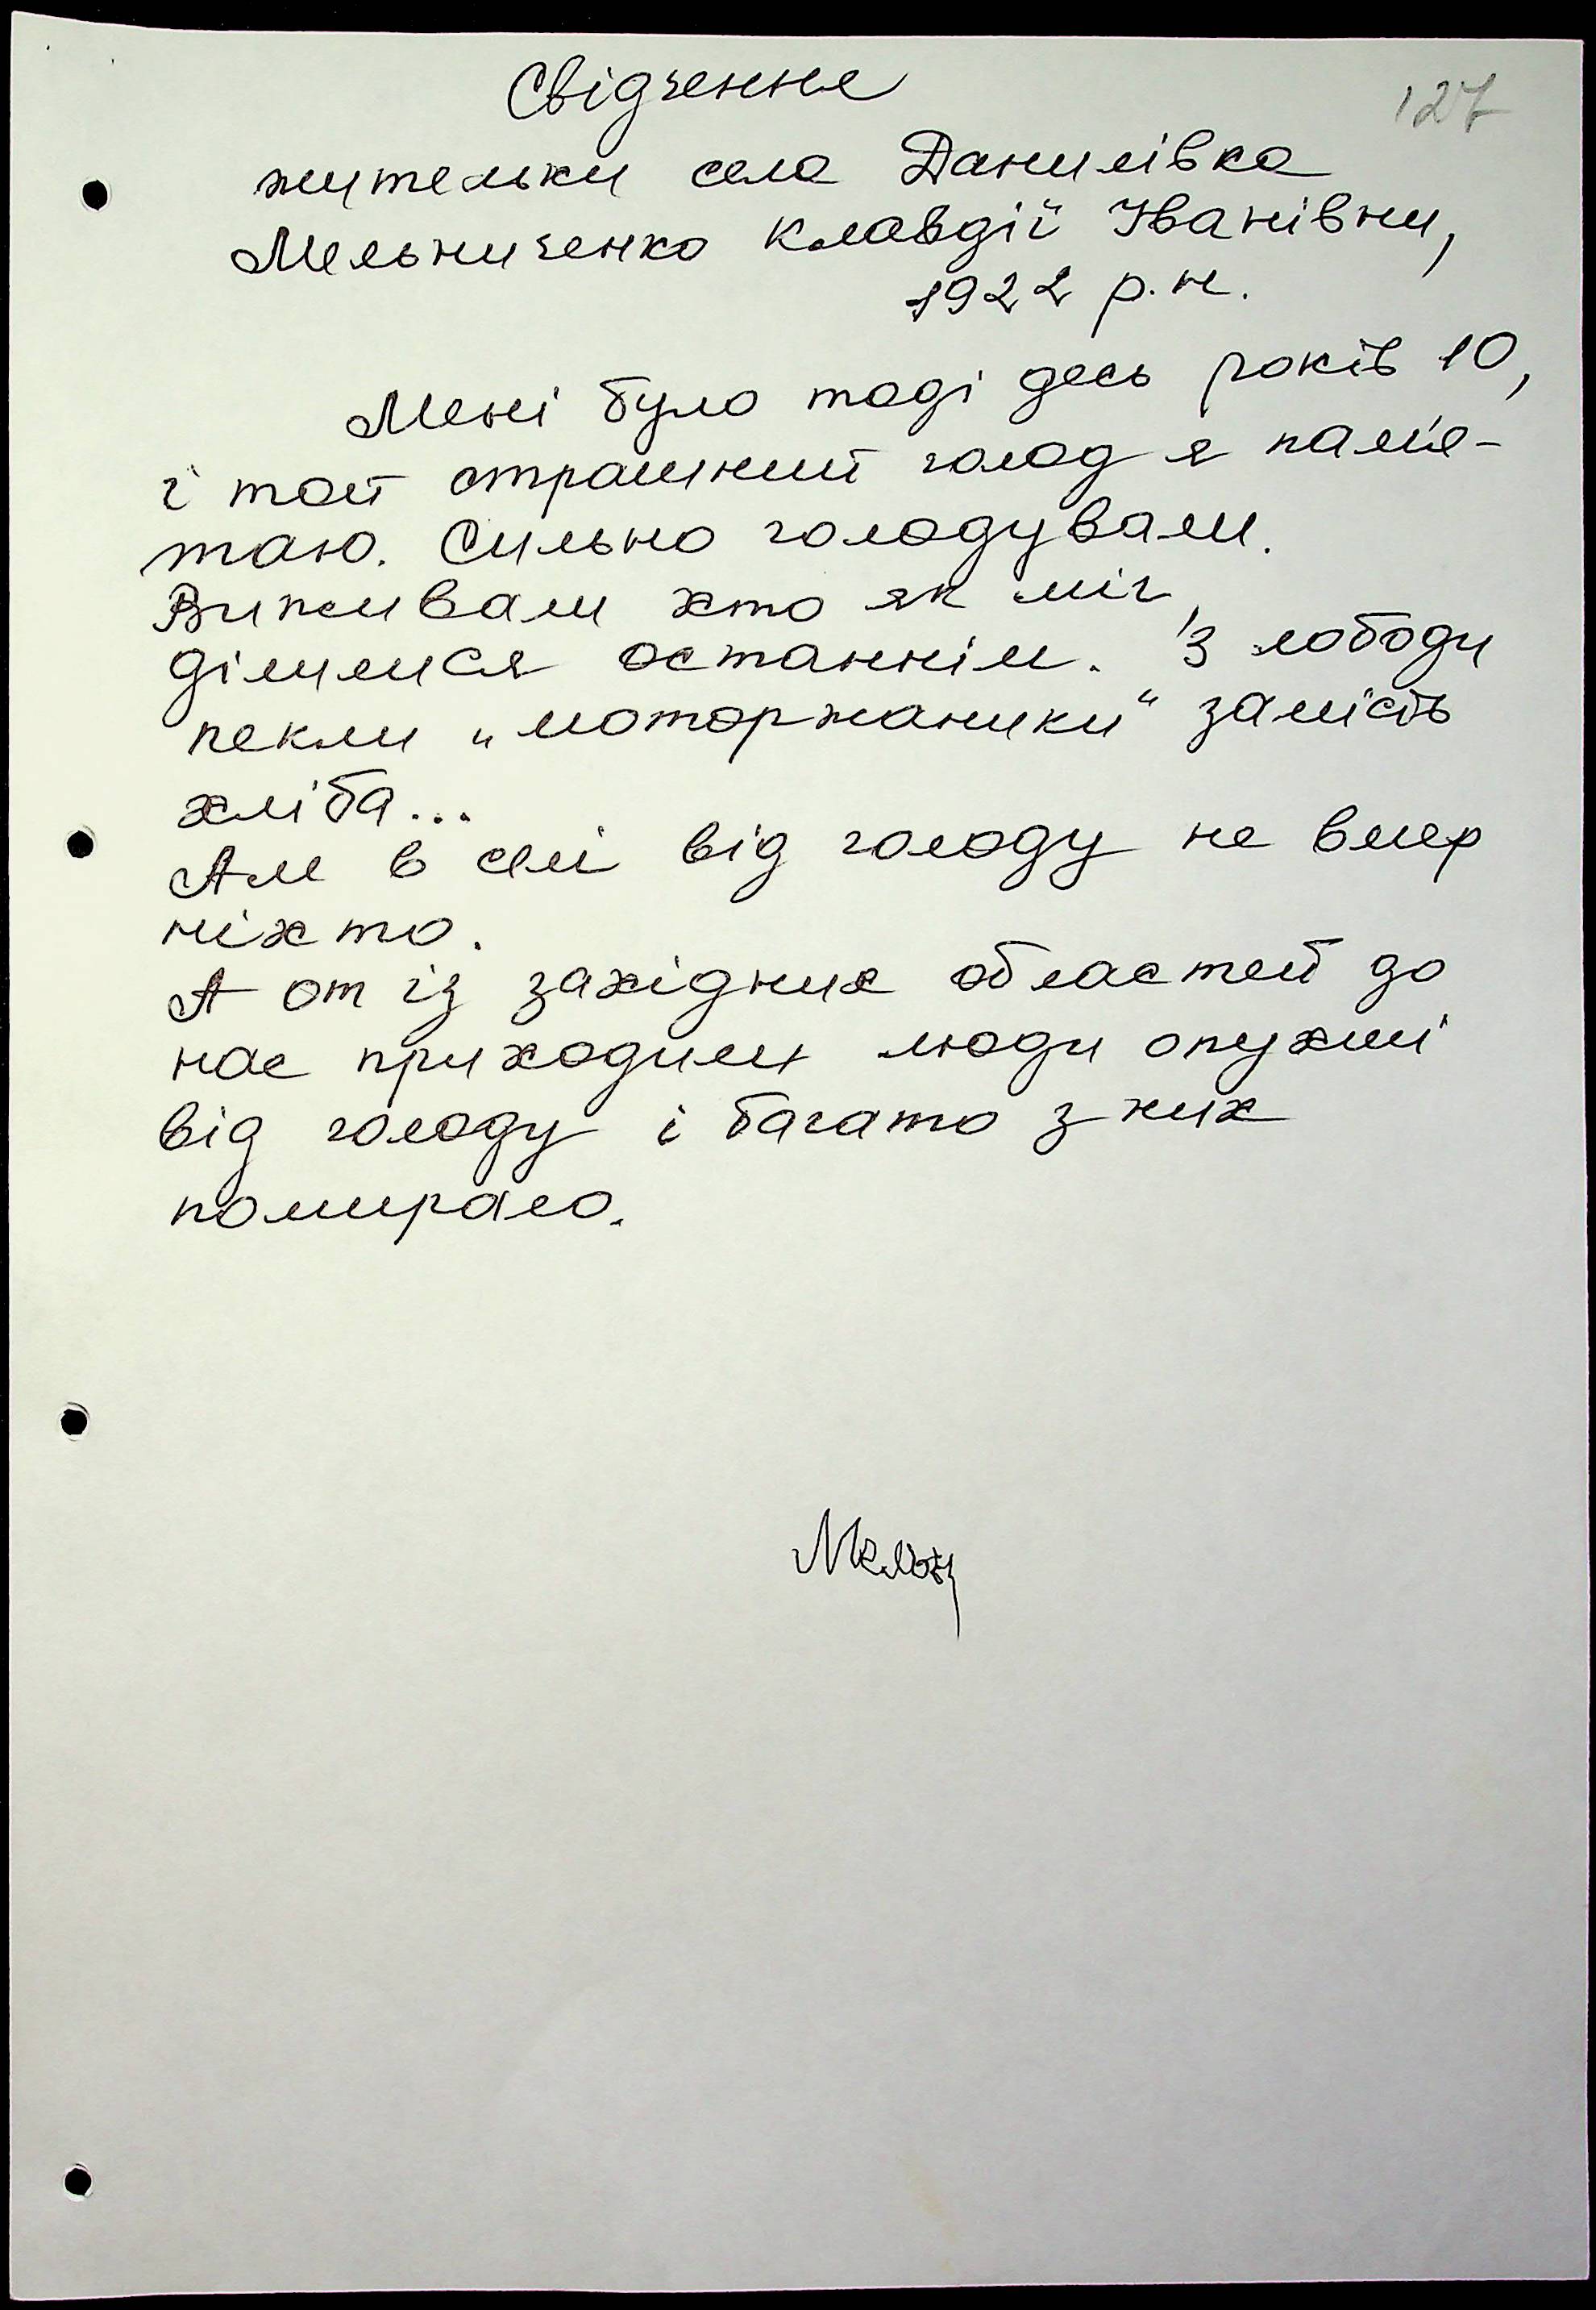 Свідчення
127
жительки села Данилівка
Мельниченко Клавдії Іванівни,
1922 р.н.
Мені було тоді десь років 10,
і той страшний голод я пам'я-
таю. Сильно голодували.
Виживали хто як міг,
ділилися останнім. З лободи
пекли „моторжаники“ замість
хліба...
Але в селі від голоду не вмер
ніхто.
А от із західних областей до
нас приходили люди опухлі
від голоду і багато з них
помирало.